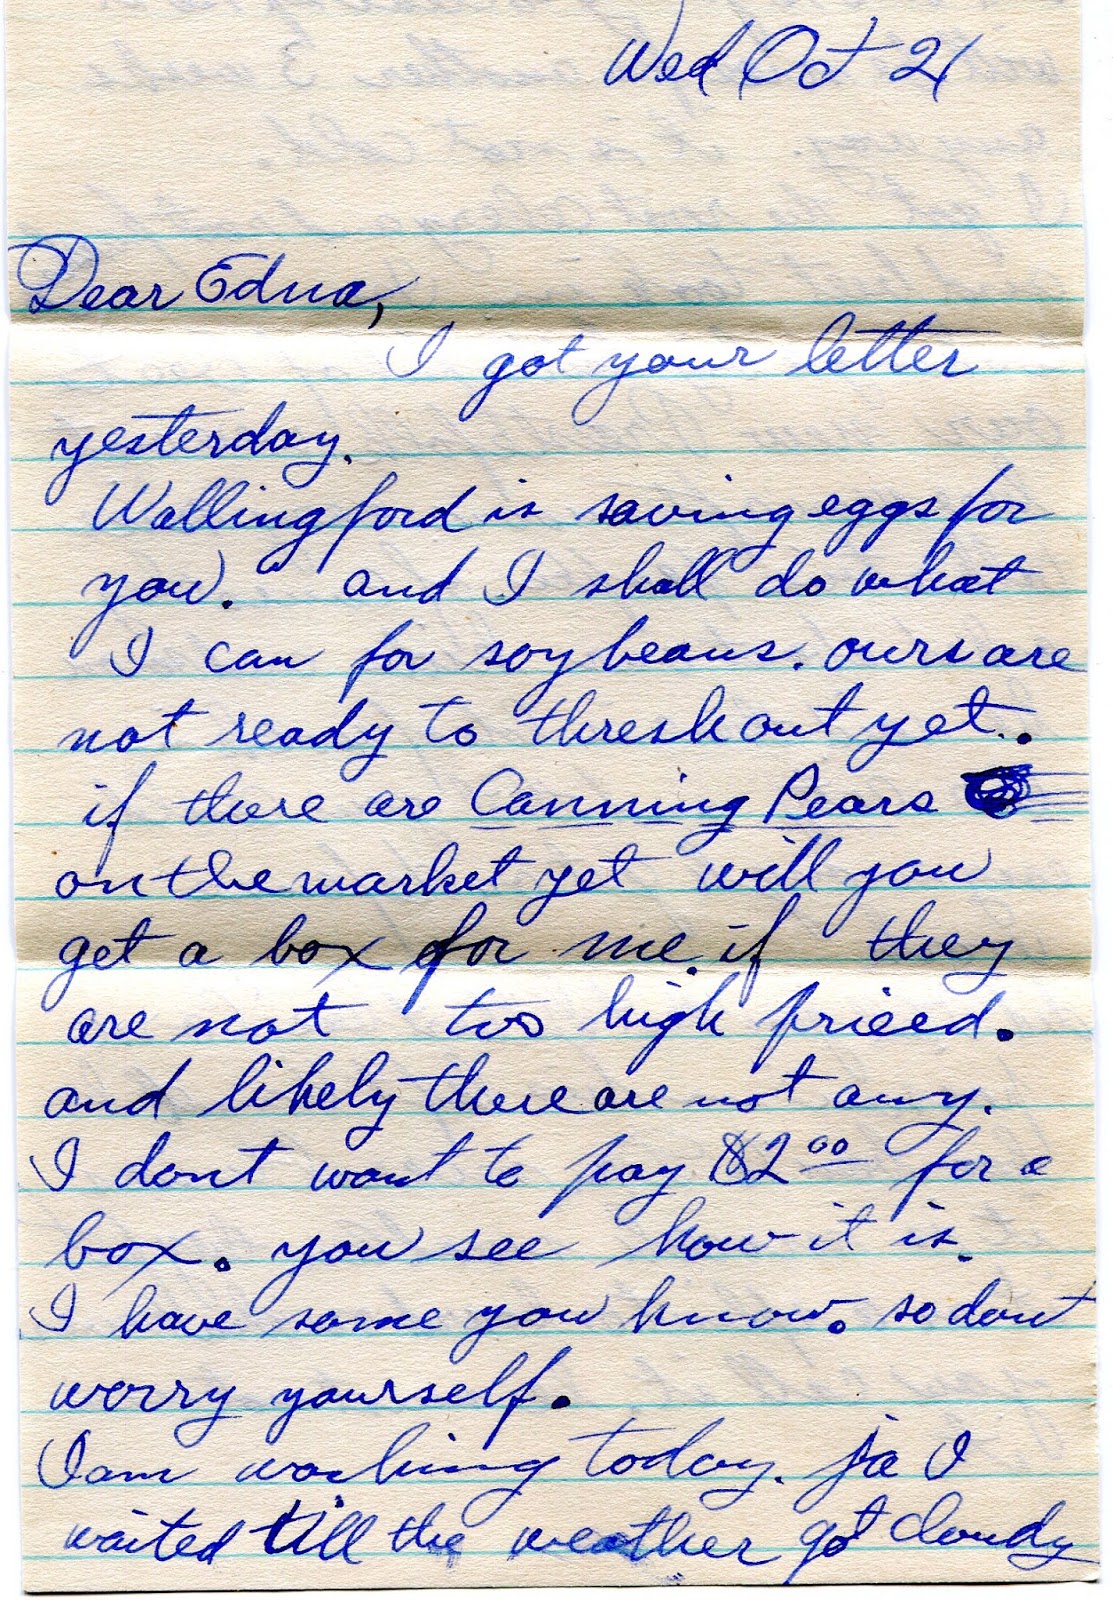 Wed Oct 21
Dear Edna,
I got your letter
yesterday.
Wallingford is saving eggs for
you. and I shall do what
I can for soybeans. ours are
not ready to thresh out yet.
if there are Canning Pears
on the market yet will you
get a box for me if they
are not too high priced.
and likely there are not any.
I dont want to pay $2.00 for a
box. you see how it is.
I have some you know. so dont
worry yourself.
I am washing today. ja I
waited till the weather got cloudy